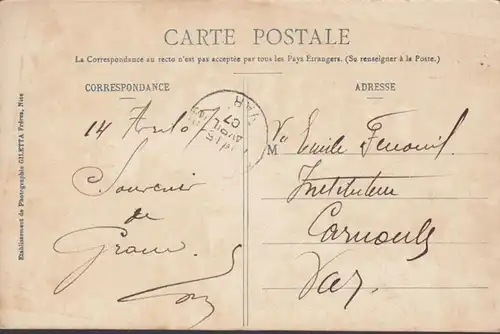 CARTE POSTALE
La Correspondance au recto n'est pas acceptée par tous les Pays Étrangers. (Se renseigner à la Poste.)
CORRESPONDANCE
ADRESSE
14
Souvenir
de
M
Emile Fenouil
Instituteur
Carnoules
Var.
VAR
AVRIL
07
Etablissement de Photographie GILETTA Frères, Nice